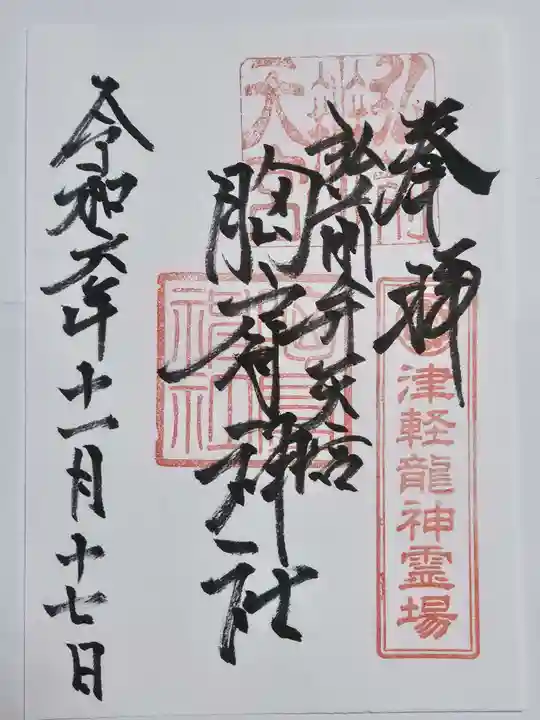 奉拝
津軽龍神霊場
弘前弁天宮
胸肩神社
令和六年十一月十七日